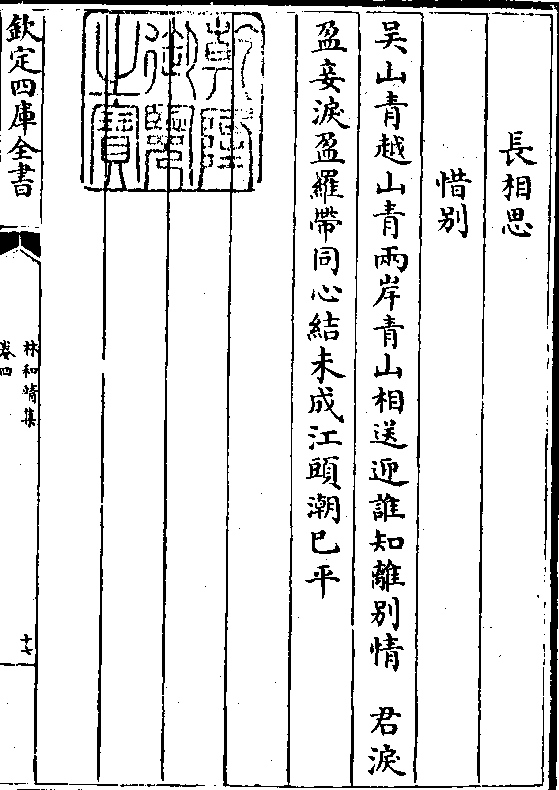 長相思
惜別
吳山青越山青兩岸青山相送迎誰知離別情　君淚
盈妾淚盈羅帶同心結未成江頭潮已平
乾隆御覽之寶
欽定四庫全書
林和靖集
卷四
十七